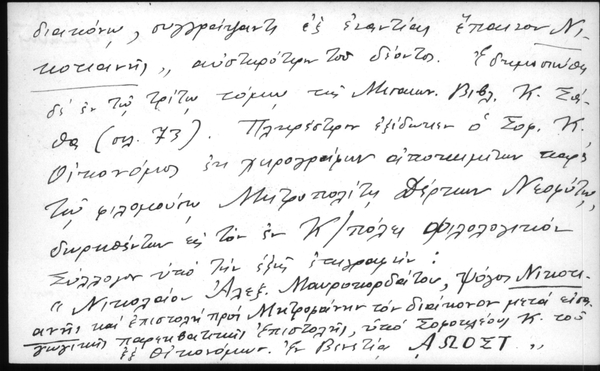 διακόνῳ, συγγράψαντι ἐξ ἐναντίας ἔπαινον Νι-
κοτιανῆς,, αὐστηρότερον τοῦ δέοντος. Ἐδημοσιεύθη
δέ ἐν τῷ τρίτῳ τόμῳ τῆς Μεσαιων. Βιβλ. Κ. Σά-
θα (σελ. 73). Πληρέστερον ἐξέδωκεν ὁ Σοφ. Κ.
Οἰκονόμος ἐκ χειρογράφων ἀποκειμένων παρά
τῷ φιλομούσῳ Μητροπολίτῃ Δέρκων Νεοφύτῳ,
δωρηθέντων εἰς τόν ἐν Κ/πόλει Φιλολογικόν
Σύλλογον ὑπό τήν ἑξῆς ἐπιγραφήν:
"Νικολάου Ἀλεξ. Μαυροκορδάτου, ψόγος Νικοτι-
ανῆς καί ἐπιστολή πρός Μητροφάνην τόν διάκονον μετά εἰσα-
γωγικῆς παρεκβατικῆς Ἐπιστολῆς, ὑπό Σοφοκλέους Κ. τοῦ
ἐξ Οἰκονόμων. Ἐν Βενετίᾳ ΑΩΟΣΤ ,,